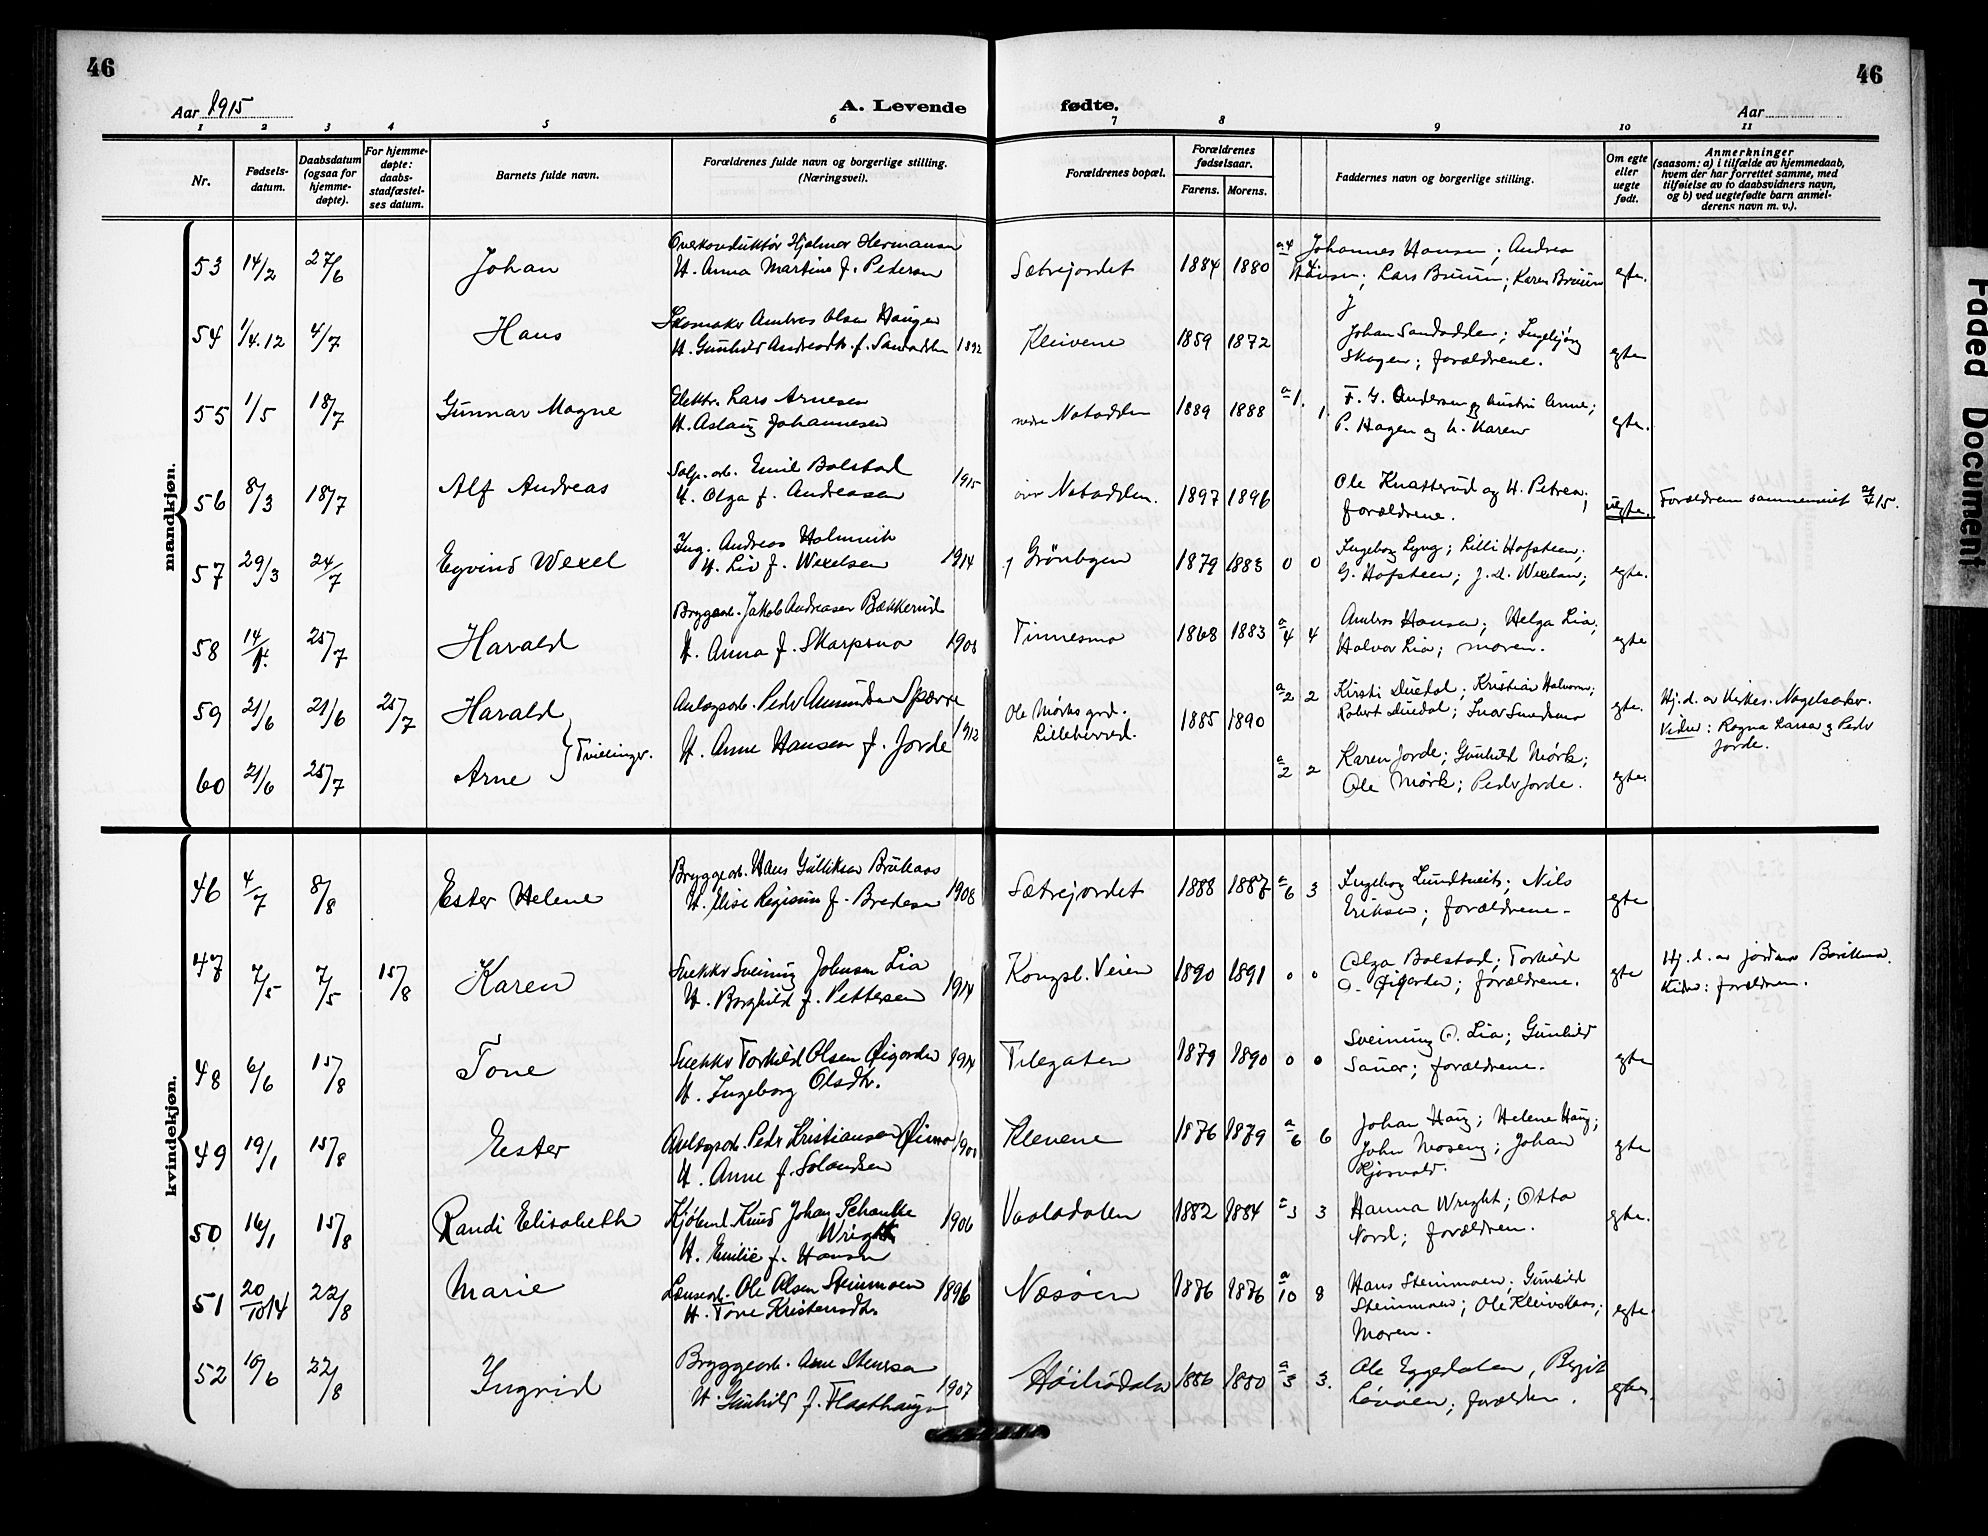 46
46
Aar 1915
A. Levende
fødte.
Aar
1 2 3 4 5 6 7 8 9 10 11
Nr.
Fødsels-
datum.
Daabsdatum
(ogsaa for
hjemme-
døpte).
For hjemme-
døpte:
daabs-
stadfæstel-
ses datum.
Barnets fulde navn.
Forældrenes fulde navn og borgerlige stilling.
(Næringsvei).
Forældrenes bopæl.
Forældrenes
fødselsaar.
Farens. Morens.
Faddernes navn og borgerlige stilling.
Om egte
eller
uegte
født.
Anmerkninger
(saasom: a) i tilfælde av hjemmedaab,
hvem der har forrettet samme, med
tilføielse av to daabsvidners navn,
og b) ved uegtefødte barn anmel-
derens navn m. v.).
mandkjøn.
53 14/2 27/6 Johan
Overkonduktør Hjalmar Hermansen
H. Anna Martine f. Pedersen
Sætrejordet 1884 1880 a4 4
Johannes Hansen; Andrea
Hansen; Lars Bruun; Karen Bruun
egte.
54 1/4.12 4/7 Hans
Skomaker Ambros Olsen Haugen
H. Gunhild Andreasdtr. f. Sandodden 1892
Kleivene 1859 1872
Johan Sandodden; Ingebjørg
Skogen; forældrene.
egte
55 1/5 18/7 Gunnar Magne
Elektr. Lars Arnesen
H. Aslaug Johannesen
nedre Notodden 1889 1888 a1. 1.
F. G. Andersen og hustru Anne;
P. Hagen og h. Karen
egte.
56 8/3 18/7 Alf Andreas
Salp. arb. Emil Bolstad
H. Olga f. Andreasen 1915
øvre Notodden. 1897 1896
Ole Knatterud og H. Petrea;
forældrene.
uegte.
Forældrene sammenviet 15.
57 29/3 24/7 Eyvind Wexel
Ing. Andreas Holmvik
H. Liv f. Wexelsen 1914
Grønbyen 1879 1883 0 0
Ingeborg Lyng; Lilli Hofsteen;
G. Hofsteen; J. d. Wexelsen;
egte.
58 14/4. 25/7 Harald
Bryggearb. Jakob Andreasen Bækkerud
H. Anna f. Skarpsno 1908
Tinnesmo 1868 1883 a4 4
Ambros Hansen; Helga Lia;
Halvor Lia; moren.
egte
59 21/6 21/6 25/7 Harald
Anlægsarb. Peder Amundsen Sparre
H. Anne Hansen f. Jorde 1912
Ole Mørks grd.
Lilleherred.
1885 1890 a2 2
Kirsti Duedal; Kristian Halvorsen;
Robert Duedal; Ivar Smedsmo
egte.
Hj.d. av Kirkes. Nagelsaker.
Vidner: Ragna Larsen og Peder
Jorde.
Tvillinger.
60 21/6 25/7 Arne
a2 2
Karen Jorde; Gunhild Mørk;
Ole Mørk; Peder Jorde.
egte.
kvindekjøn.
46 4/7 8/8 Ester Helene
Bryggearb. Hans Gulliksen Bruhaas
H. Elise Regine f. Bredesen 1908
Sætrejordet 1888 1887 a6 3
Ingeborg Lundtveit; Nils
Eriksen; forældrene.
egte
47 7/5 7/5 15/8 Karen
Snekker Sveinung Johnsen Lia
H. Borghild f. Pettersen 1914
Kongsb. Veien 1890 1891 0 0
Olga Bolstad; Torkild
O. Øigarden; forældrene.
egte
Hj.d. av jordmor
Vidner: forældrene.
48 6/6 15/8 Tone
Snekker Torkild Olsen Øigarden 1914
H. Ingeborg Olsdtr.
Telegaten 1879 1890 0 0
Sveinung O. Lia; Gunhild
Sauar; forældrene.
egte
49 19/1 15/8 Ester
Anlægsarb. Peder Kristiansen
H. Anne f. Solandsen
Klevene 1876 1879 a6 6
Johan Haug; Helene Haug;
John Moseng; Johan
Kjosvold.
egte
50 16/1 15/8 Randi Elisabeth
Kjøbmd. Knud Johan Schanke
Wright 1906
H. Emilie f. Hansen
Vaaladalen 1882 1884 a3 3
Hanna Wright; Otto
Nord; forældrene.
egte.
51 20/10 14 22/8 Marie
Lænsearb. Ole Olsen Steinmoen 1896
H. Tone Kristensdtr.
Næsøen 1876 1876 a10 8
Hans Steinmoen; Gunhild
Steinmoen; Ole Kleivstaas;
Moren.
egte.
52 10/6 22/8 Ingrid
Bryggearb. Arne Stensen
H. Gunhild f. Flaathaugen 1907
Høibødalen 1886 1880 a3 3.
Ole Eggedalen, Bergit
Løvøen; forældrene.
egte.
Faded Document